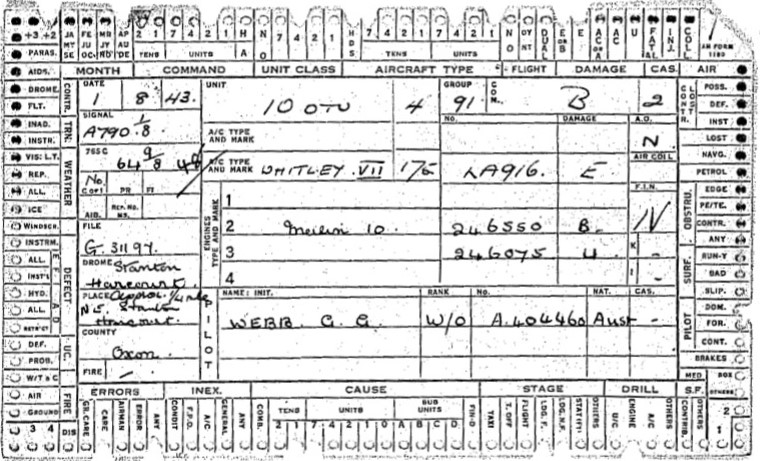 +3 +2 JA MT SE FE JU OC MR JY ND AP AU DE 2 1 7 4 2 1 H NO HDS 7 4 2 1 7 4 2 1 NO DY NT DUAL E OR B E AC OR A ACC U FATAL INJ. COLL. AM FORM 1180
TENS UNITS A TENS UNITS
PARAS.
AIDS. MONTH COMMAND UNIT CLASS AIRCRAFT TYPE FLIGHT DAMAGE CAS. AIR
DROME CONTR. DATE UNIT GROUP COM. CONTR. CLOST POSS.
FLT. 1 8 43. 10 OTU 4 91. B 2 DEF.
INAD. TRN. SIGNAL No. DAMAGE A.O. INST
INSTR. A790 1/8 A/C TYPE AND MARK N LOST
VIS: L.T. WEATHER 765C AIR COLL NAVG.
REP. 64 9/8 A/C TYPE AND MARK WHITLEY. VII 175 LA916. E PETROL
ALL. No. C OF I PR FI F.I.N. OBSTRU. EDGE
ICE AIB. REP. No. 1 N PE/TE.
WINDSCR. FILE ENGINES TYPE AND MARK 2 Merlin 10. 246550 B. CONTR.
INSTRM. DEFECT G. 31197. 3 246075 U. K - ANY
ALL. DROME Stanton Harcourt 4 I - SURF. RUN-Y
INST'S BAD
HYD. PLACE Approx. 1/4 mile PILOT NAME: INIT. RANK No. NAT. CAS. SLIP.
ALL N.E. Stanton Harcourt. WEBB. G. G. W/O A.404460 Aust - PILOT DOM.
RSTRICT COUNTY FOR.
DEF. UC. Oxon. CONT.
PROB. BRAKES
W/T & C FIRE - MED BOX
AIR FIRE ERRORS INEX. CAUSE STAGE DRILL S.F. OTHERS
GROUND GR. CARE CARE AIRMAN ERROR ANY CONDIT F.P.O. A/C GENERAL ANY COMB. TENS UNITS SUB UNITS FIN-D TAXI T. OFF FLIGHT LDG. F. LDG. N.F. STAT(F) OTHERS U/C ENGINE A/C OTHERS CONTRIB. OTHERS 2
3 4 DIS 2 1 7 4 2 1 7 4 2 1 0 A B C D 1